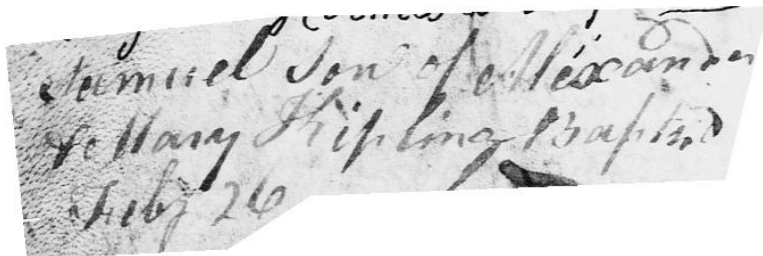 Samuel Son of Alexander
& Mary Kipling Baptsd
Feby 26